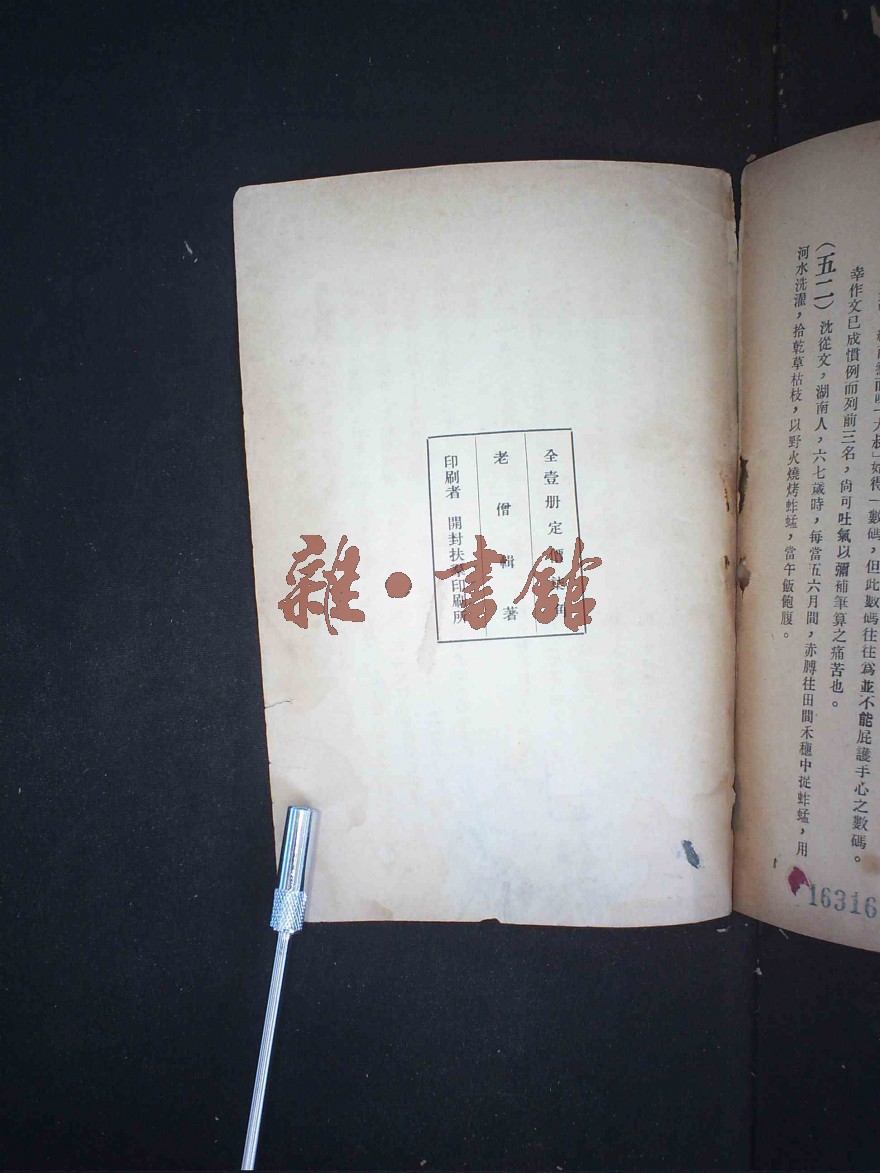 大叔」始得一數碼，但此數碼往往爲並不能庇護手心之數碼。
幸作文已成慣例而列前三名，尙可吐氣以彌補筆算之痛苦也。
（五二）沈從文，湖南人，六七歲時，每當五六月間，赤膊往田間禾穗中捉蚱蜢，用
河水洗濯，拾乾草枯枝，以野火燒烤蚱蜢，當午飯飽腹。
16316
全壹册定價角
老僧輯著
印刷者 開封扶印刷所
雜·書館